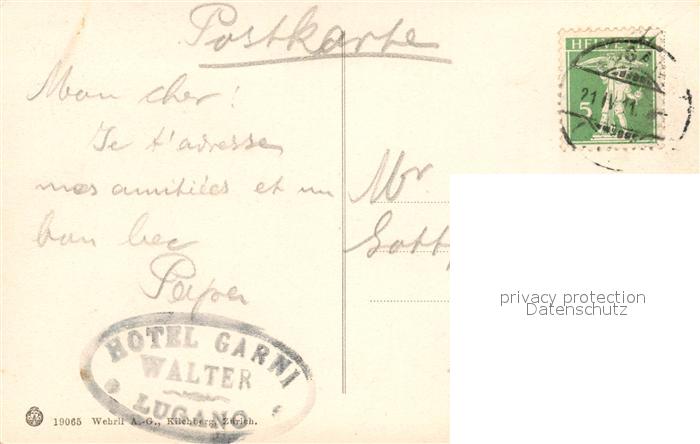 Postkarte
HELVETIA
21 IV 11
5
Mon cher!
Je t'adresse
mes amitiées et un
bon bec
Papa
Mr
Gott
privacy protection
Datenschutz
HOTEL GARNI
WALTER
LUGANO
19065 Wehrli A.-G., Kilchberg, Zürich.